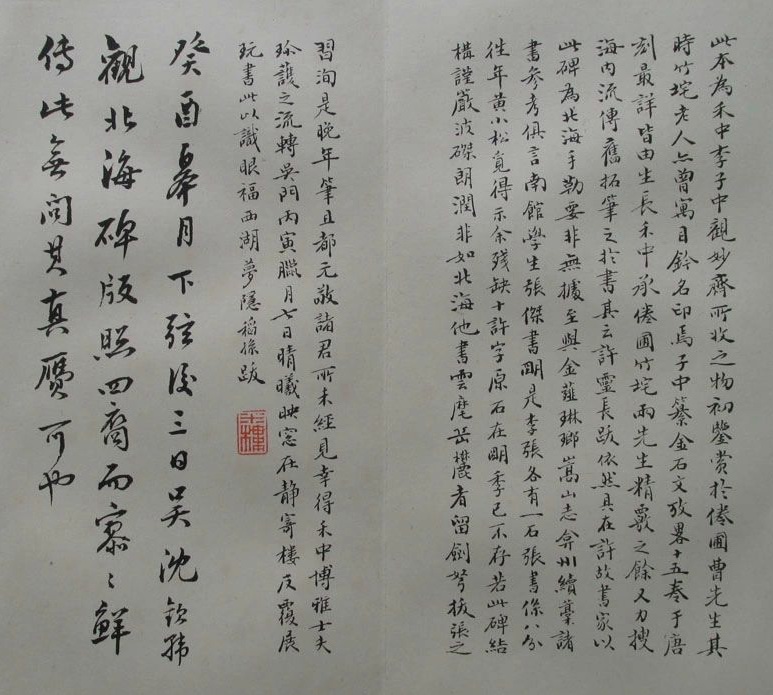 此本為禾中李子中觀妙齋所收之物初鑒賞於倦圃曹先生其
時竹垞老人亦曾寓目鈐名印焉子中纂金石文攷畧十五卷于唐
刻最詳皆由生長禾中承倦圃竹垞兩先生精覈之餘又力搜
海内流傳舊拓筆之於書其云許靈長跋依然具在許故書家以
此碑為北海手勒要非無據至與金薤琳瑯嵩山志弇州續藁諸
書參考俱言南館學生張傑書明是李張各有一石張書係八分
往年黃小松覓得示余殘缺十許字原石在明季已不存若此碑結
構謹嚴波磔朗潤非如北海他書雲麾岳麓者留劍弩拔張之
習洵是晚年筆且都元敬諸君所未經見幸得禾中博雅士夫
珍護之流轉吳門丙寅臘月七日晴曦映窓在静寄樓反覆展
玩書此以識眼福西湖夢隱稻孫跋
癸酉皋月下弦後三日吴沈欽韓
觀北海碑版照四裔而寡〻鮮
傳此無問其真贋可也